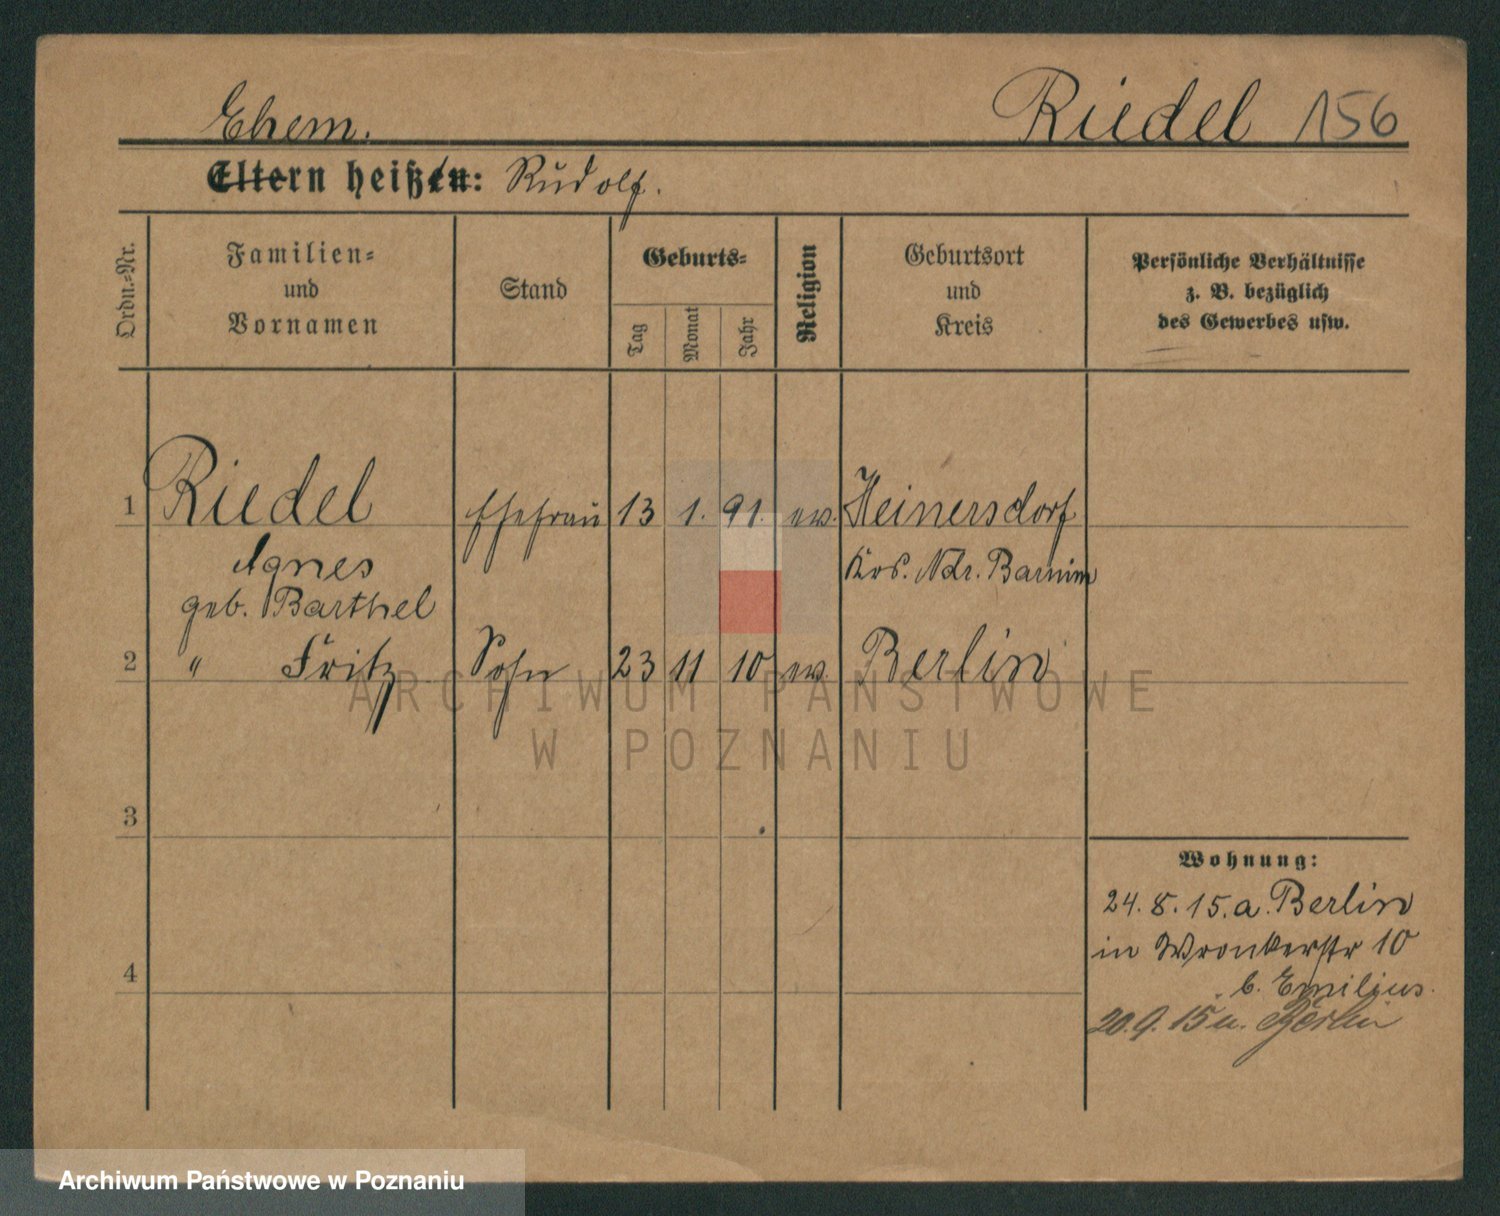 Ehem.
Riedel 156
Eltern heißen: Rudolf.
Ordn.-Nr.
Familien-
und
Vornamen
Stand
Geburts-
Tag
Monat
Jahr
Religion
Geburtsort
und
Kreis
Persönliche Verhältnisse
z. B. bezüglich
des Gewerbes usw.
1 Riedel Ehefrau 13 1. 91. ev. Heinersdorf
Agnes Krs. Ndr. Barnim
geb. Barthel
2 " Fritz Sohn 23 11 10 ev. Berlin
ARCHIWUM PAŃSTWOWE
W POZNANIU
3
Wohnung:
24. 8. 15. a. Berlin
in Wronkerstr 10
4
b. Emilius.
20. 9. 15 n. Berlin
Archiwum Państwowe w Poznaniu